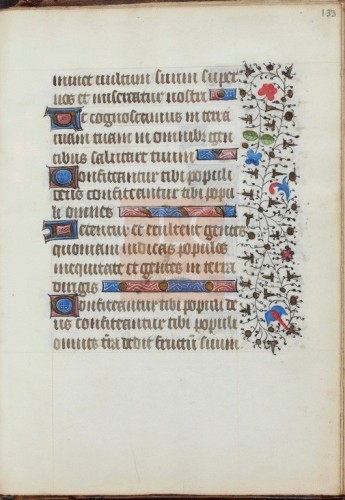 183
minet vultum suum super
nos et misereatur nostri
Ut cognoscamus in terra
viam tuam in omnibus gen
tibus salutare tuum
Confiteantur tibi populi
deus confiteantur tibi popu
li omnes
Letentur et exultent gentes
quoniam iudicas populos
in equitate et gentes in terra
dirigis
Confiteantur tibi populi de
us confiteantur tibi populi
omnes t̄ra dedit fructū suum